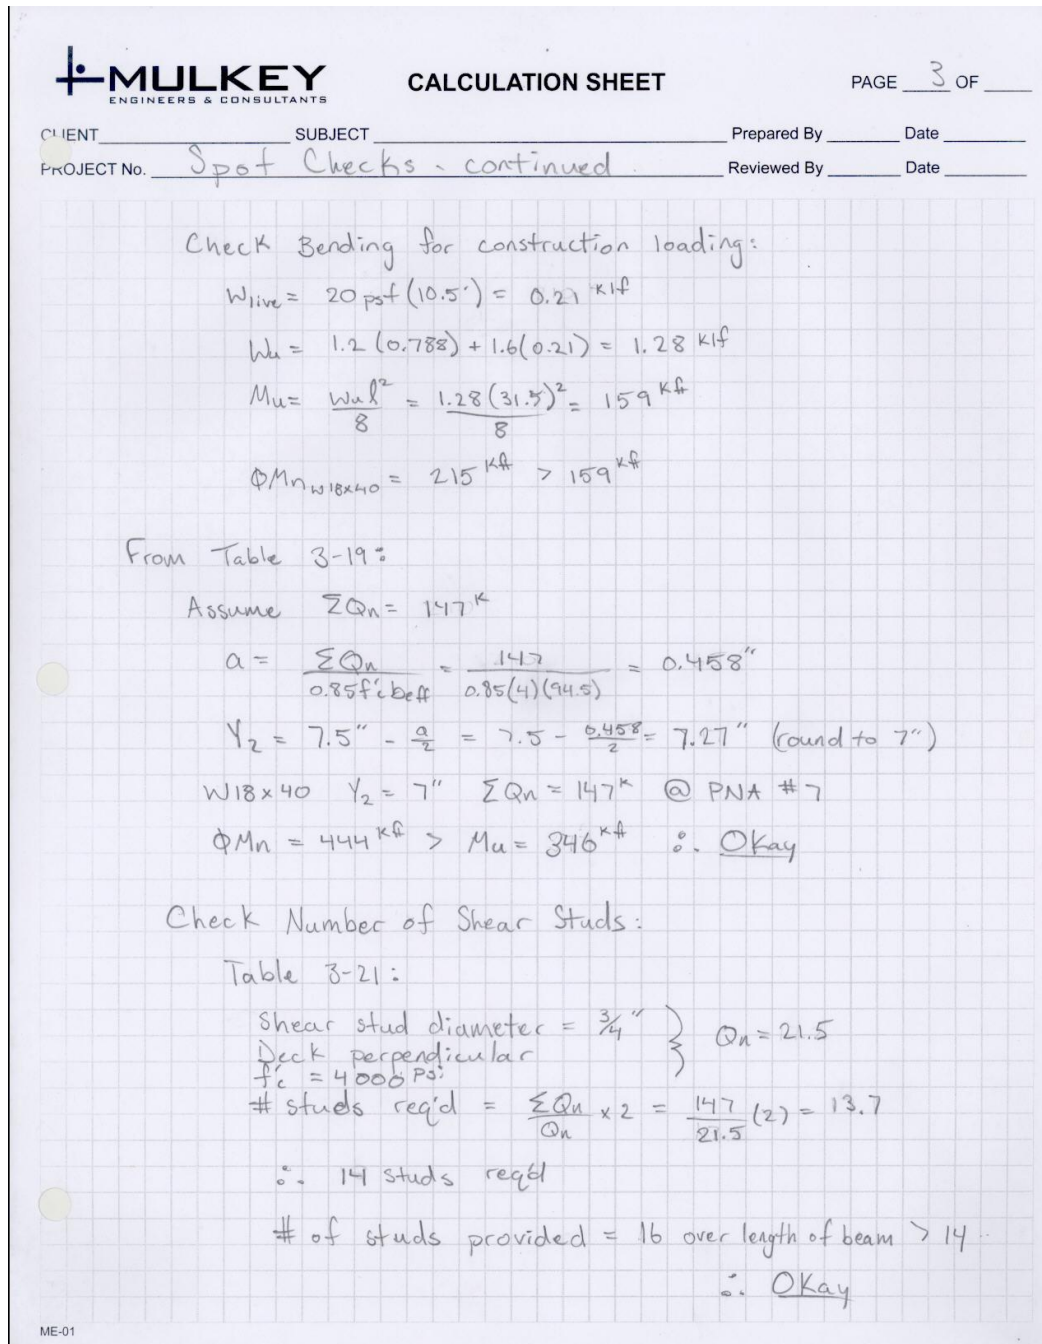 MULKEY
ENGINEERS & CONSULTANTS
CALCULATION SHEET
PAGE 3 OF
CLIENT SUBJECT Prepared By Date
PROJECT No. Spot Checks - continued Reviewed By Date
Check Bending for construction loading:
Wlive = 20 psf (10.5') = 0.21 klf
Wu = 1.2 (0.788) + 1.6(0.21) = 1.28 klf
Mu = wul²/8 = 1.28(31.5)²/8 = 159 kft
ΦMn W18x40 = 215 kft > 159 kft
From Table 3-19:
Assume ΣQn = 147 k
a = ΣQn/0.85f'c beff = 147/0.85(4)(94.5) = 0.458"
Y2 = 7.5" - a/2 = 7.5 - 0.458/2 = 7.27" (round to 7")
W18x40 Y2 = 7" ΣQn = 147 k @ PNA #7
ΦMn = 444 kft > Mu = 346 kft ∴ Okay
Check Number of Shear Studs:
Table 3-21:
Shear stud diameter = 3/4"
Deck perpendicular } Qn = 21.5
f'c = 4000 psi
# studs req'd = ΣQn/Qn x 2 = 147/21.5 (2) = 13.7
∴ 14 studs req'd
# of studs provided = 16 over length of beam > 14
∴ Okay
ME-01